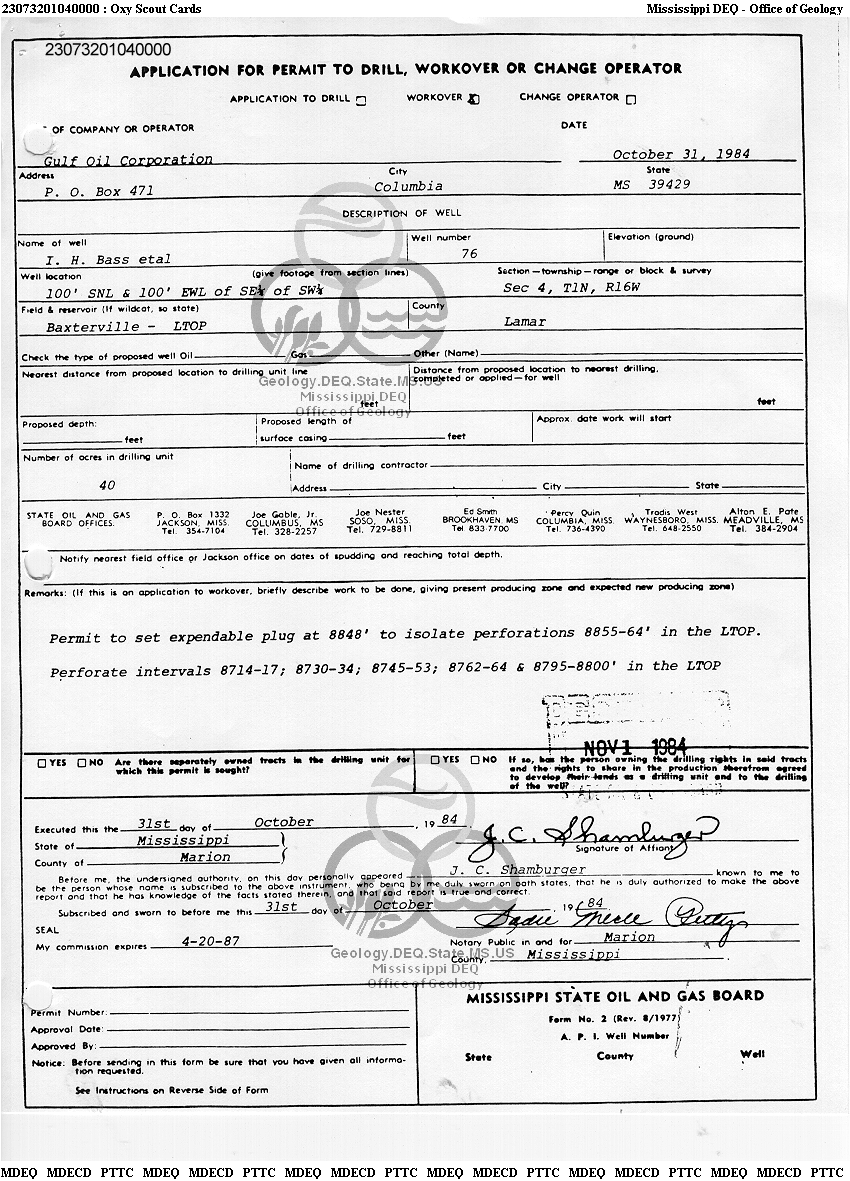 23073201040000 : Oxy Scout Cards Mississippi DEQ - Office of Geology
23073201040000
APPLICATION FOR PERMIT TO DRILL, WORKOVER OR CHANGE OPERATOR
APPLICATION TO DRILL ☐ WORKOVER ☒ CHANGE OPERATOR ☐
OF COMPANY OR OPERATOR DATE
Gulf Oil Corporation October 31, 1984
Address City State
P. O. Box 471 Columbia MS 39429
DESCRIPTION OF WELL
Name of well Well number Elevation (ground)
I. H. Bass etal 76
Well location (give footage from section lines) Section—township—range or block & survey
100' SNL & 100' EWL of SE¼ of SW¼ Sec 4, T1N, R16W
Field & reservoir (If wildcat, so state) County
Baxterville - LTOP Lamar
Check the type of proposed well Oil Gas Other (Name)
Nearest distance from proposed location to drilling unit line Distance from proposed location to nearest drilling,
completed or applied—for well
Geology.DEQ.State.MS.US
Mississippi DEQ
Office of Geology
feet feet
Proposed depth: Proposed length of Approx. date work will start
feet surface casing feet
Number of acres in drilling unit Name of drilling contractor
40 Address City State
STATE OIL AND GAS P. O. Box 1332 Joe Gable, Jr. Joe Nester Ed Smith Percy Quin Tradis West Alton E. Pate
BOARD OFFICES. JACKSON, MISS. COLUMBUS, MS SOSO, MISS. BROOKHAVEN, MS COLUMBIA, MISS. WAYNESBORO, MISS. MEADVILLE, MS
Tel. 354-7104 Tel. 328-2257 Tel. 729-8811 Tel. 833-7700 Tel. 736-4390 Tel. 648-2550 Tel. 384-2904
Notify nearest field office or Jackson office on dates of spudding and reaching total depth.
Remarks: (If this is an application to workover, briefly describe work to be done, giving present producing zone and expected new producing zone)
Permit to set expendable plug at 8848' to isolate perforations 8855-64' in the LTOP.
Perforate intervals 8714-17; 8730-34; 8745-53; 8762-64 & 8795-8800' in the LTOP
NOV 1 1984
☐ YES ☐ NO Are there separately owned tracts in the drilling unit for
which this permit is sought?
☐ YES ☐ NO If so, has the person owning the drilling rights in said tracts
and the rights to share in the production therefrom agreed
to develop their lands as a drilling unit and to the drilling
of the well?
Executed this the 31st day of October, 19 84.
State of Mississippi J. C. Shamburger
Signature of Affiant
County of Marion
Before me, the undersigned authority, on this day personally appeared J. C. Shamburger known to me to
be the person whose name is subscribed to the above instrument, who being by me duly sworn on oath states, that he is duly authorized to make the above
report and that he has knowledge of the facts stated therein, and that said report is true and correct.
Subscribed and sworn to before me this 31st day of October, 19 84
SEAL
My commission expires 4-20-87
Notary Public in and for Marion
County, Mississippi.
Geology.DEQ.State.MS.US
Mississippi DEQ
Office of Geology
Permit Number:
Approval Date:
Approved By:
Notice: Before sending in this form be sure that you have given all informa-
tion requested.
See Instructions on Reverse Side of Form
MISSISSIPPI STATE OIL AND GAS BOARD
Form No. 2 (Rev. 8/1977)
A. P. I. Well Number
State County Well
MDEQ MDECD PTTC MDEQ MDECD PTTC MDEQ MDECD PTTC MDEQ MDECD PTTC MDEQ MDECD PTTC MDEQ MDECD PTTC